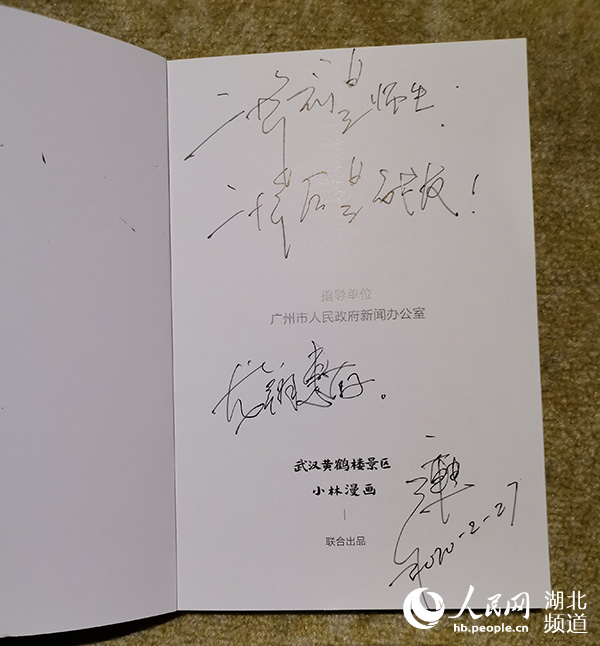 二十年前是师生，
二十年后是战友！
指导单位
广州市人民政府新闻办公室
惠存。
武汉黄鹤楼景区
小林漫画
联合出品
2020-2-27
人民网 湖北频道
hb.people.cn